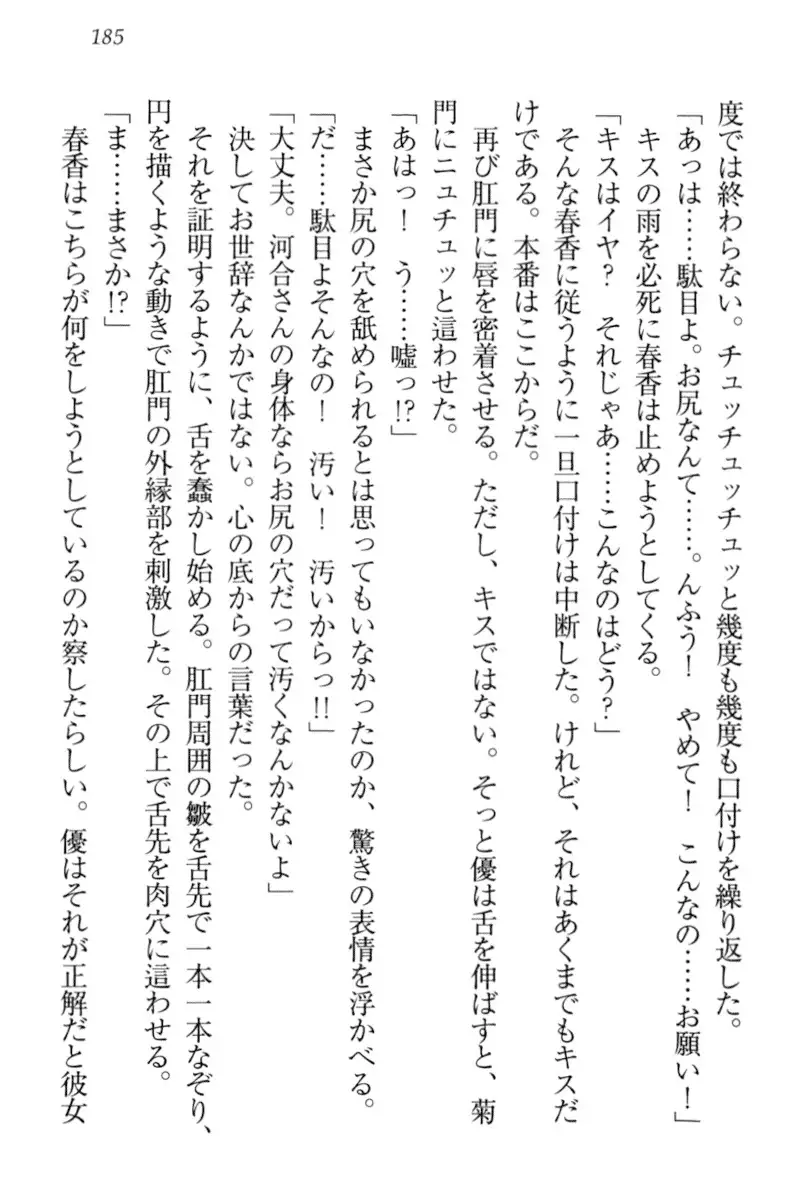 185
度では終わらない。チュッチュッチュッと幾度も幾度も口付けを繰り返した。
「あっは……駄目よ。お尻なんて……。んふぅ！　やめて！　こんなの……お願い！」
キスの雨を必死に春香は止めようとしてくる。
「キスはイヤ？　それじゃあ……こんなのはどう？」
そんな春香に従うように一旦口付けは中断した。けれど、それはあくまでもキスだ
けである。本番はここからだ。
再び肛門に唇を密着させる。ただし、キスではない。そっと優は舌を伸ばすと、菊
門にニュチュッと這わせた。
「あはっ！　う……嘘っ!?」
まさか尻の穴を舐められるとは思ってもいなかったのか、驚きの表情を浮かべる。
「だ……駄目よそんなの！　汚い！　汚いからっ!!」
「大丈夫。河合さんの身体ならお尻の穴だって汚くなんかないよ」
決してお世辞なんかではない。心の底からの言葉だった。
それを証明するように、舌を蠢かし始める。肛門周囲の皺を舌先で一本一本なぞり、
円を描くような動きで肛門の外縁部を刺激した。その上で舌先を肉穴に這わせる。
「ま……まさか!?」
春香はこちらが何をしようとしているのか察したらしい。優はそれが正解だと彼女